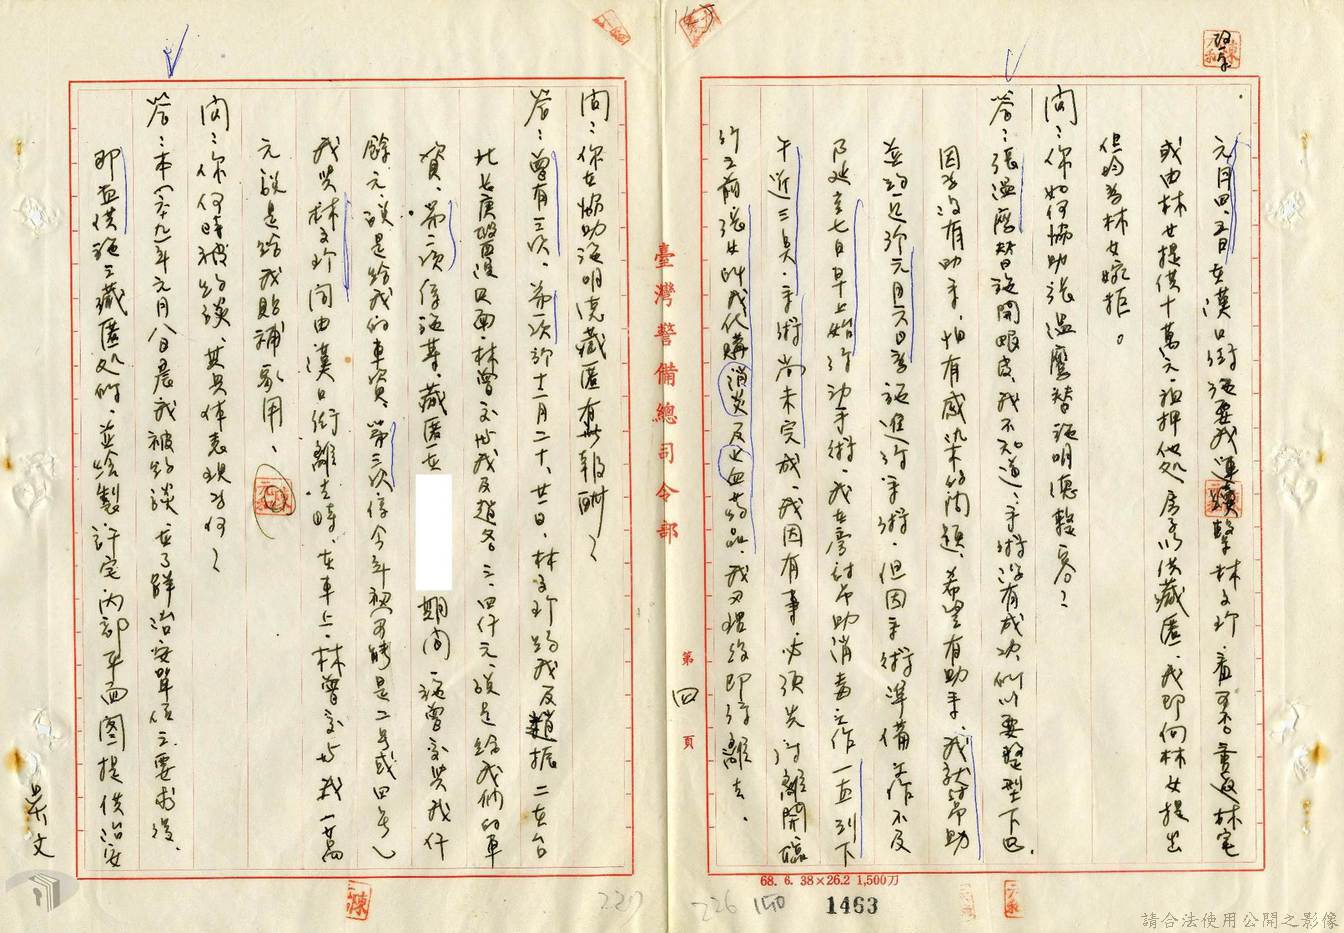 元月四、五日在漢口街施要我連續擊林文珍、看可否重返林宅
或由林女提供十萬元、租押他処房子以供藏匿、我即向林女提出
但均為林女婉拒。
問:你如何協助張溫鷹替施明德整容?
答:張溫鷹替施開眼皮、我不知道、手術沒有成功所以要整型下巴.
因為沒有助手、怕有感染的問題、希望有助手、我就幫助
並約近於元月六日為施進行手術、但因手術準備工作不及
乃延至七日早上始行動手術、我在旁討幫助消毒工作一直到下
午近三點、手術尚未完成、我因有事必須先行離開臨
行之前張女叫我代購消炎及止血药品、我
即行離去.
臺灣警備總司令部
第四頁
問:你在協助施明德藏匿有無報酬?
答:曾有三次、第一次於十一月二十、廿一日、林文珍約我及趙振二在台
北長庚醫院見面、林曾交此我及趙各三、四仟元、說是給我們的車
資、第二次係施某藏匿在
期間、施曾交與我仟
餘元、說是給我的車資、第三次係今年初可能是二号或四号
我與林文珍同由漢口街離去時、在車上、林曾交與我一萬
元說是給我貼補家用、
問:你何時被約談、其具体表現為何?
答:本(六十九)年元月八日晨我被約談、在了解治安單位之要求後、
即直供施之藏匿処所、並繪製許宅內部平面图提供治安
吳文
68. 6. 38×26.2 1,500刀
227
226
150
1463
請合法使用公開之影像